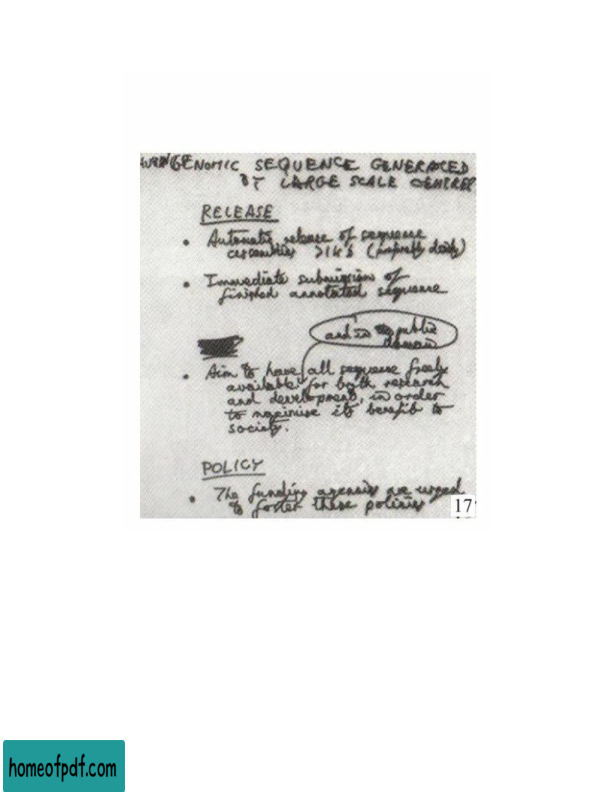 GENOMIC SEQUENCE GENERATED
BY LARGE SCALE CENTRES
RELEASE
• Automatic release of sequence
assemblies >1kb (preferably daily)
• Immediate submission of
finished annotated sequence
and in public
domain
• Aim to have all sequence freely
available for both research
and development, in order
to maximise its benefit to
society.
POLICY
• The funding agencies are urged
to foster these policies
17
homeofpdf.com